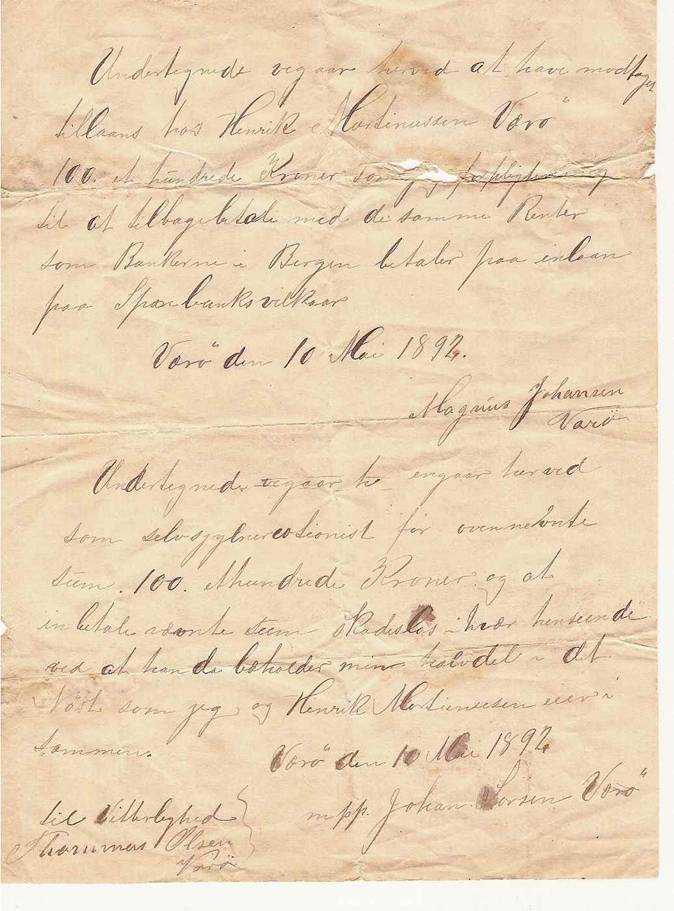 Undertegnede vegaar herved at have modtaget
tillaans hos Henrik Martinussen Værö
100. et hundrede Kroner som jeg forpligter mig
til at tilbagebetale med de samme Renter
som Bankerne i Bergen betaler paa inlaan
paa Sparbanksvilkaar
Værö den 10 Mai 1892.
Magnus Johansen
Værö
Undertegnede vegaar he engaar herved
som selvsjylnercotionist for ovennevnte
sum. 100. ethundrede Kroner og at
inbetale nævnte sum skadeslös i hvær henseende
ved at han da beholder min halvdel i det
som jeg og Henrik Martinussen eier i
sammen.
Værö den 10 Mai 1892
mpp. Johan Værö
til Vitterlighed
Thommas Olsen
Værö